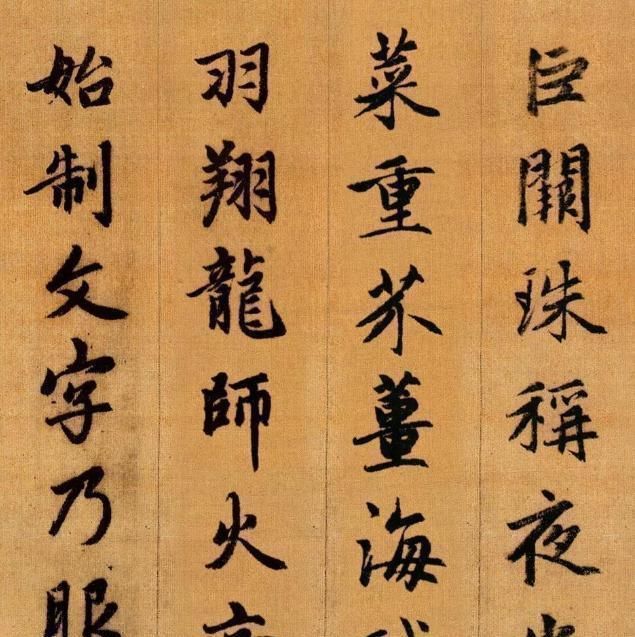 巨闕珠稱夜
菜重芥薑海
羽翔龍師火
始制文字乃服